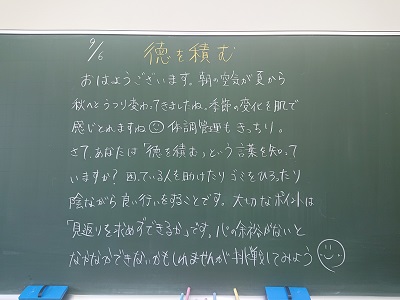 9/6 徳を積む
おはようございます。朝の空気が夏から
秋へとうつり変わってきましたね。季節の変化を肌で
感じとれますね 体調管理もきっちり。
さて、あなたは「徳を積む」という言葉を知って
いますか？困っている人を助けたりゴミをひろったり
陰ながら良い行いをすることです。大切なポイントは
「見返りを求めずできるか」です。心の余裕がないと
なかなかできないかもしれませんが挑戦してみよう